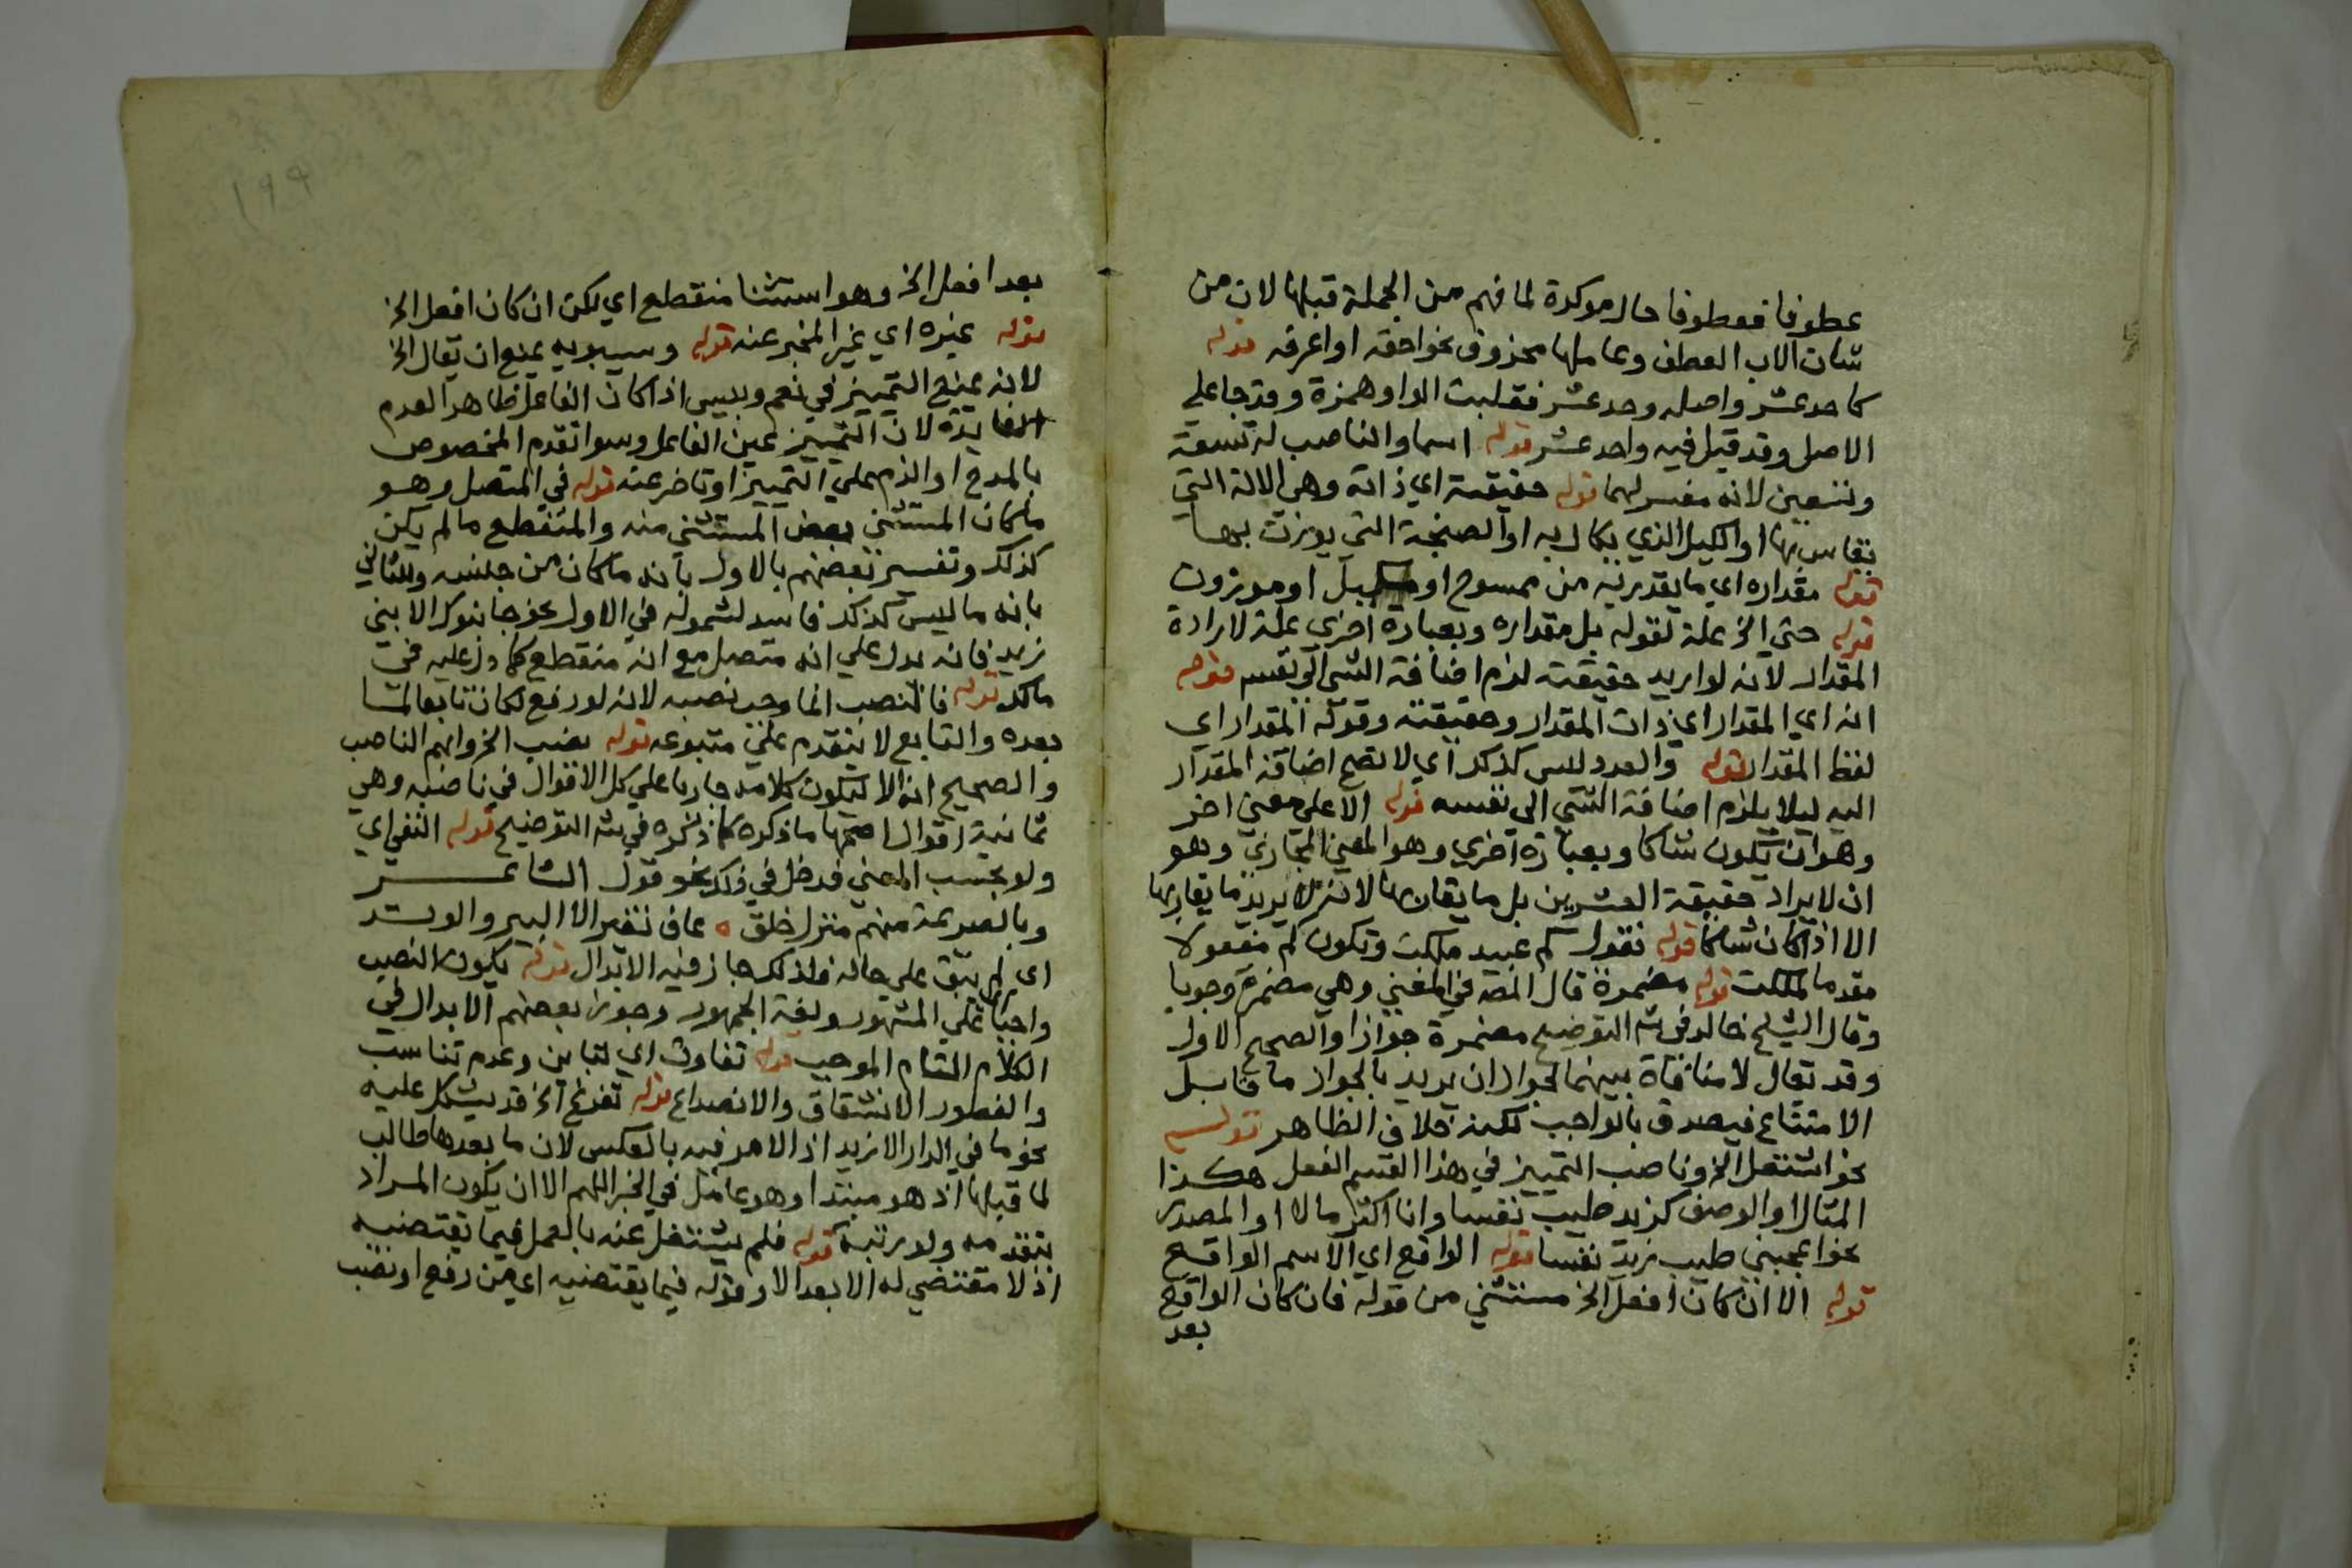 عطوفا فعطوفا حال موكدة لما فهم من الجملة قبلها لان من
شان الاب العطف وعاملها محذوف نحو احقه او اعرفه قوله
كاحد عشر واصله وحد عشر فقلبت الواو همزة وقد جا علي
الاصل وقد قيل فيه واحد عشر قوله اسما والناصب له تسعة
وتسعين لانه مفسر لهما قوله حقيقته اي ذاته وهي الالة التي
يقاس بها او الكيل الذي يكال به او الصنجة التي يوزن بها
قوله مقداره اي ما يقدر به من ممسوح او مكيل او موزون
قوله حتى الخ علة لقوله بل مقداره وبعبارة اخري علة لارادة
المقدار لانه لو اريد حقيقته لزم اضافة الشي الي نفسه قوله
انه اي المقدار اي ذات المقدار وحقيقته وقوله المقدار اي
لفظ المقدار قوله والعدد ليس كذلك اي لا تصح اضافة المقدار
اليه ليلا يلزم اضافة الشي الى نفسه قوله الا على معني اخر
وهو ان يكون شاكا وبعبارة اخري وهو المعني المجازي وهو
ان لا يراد حقيقة العشرين بل ما يقاربها لانه لا يريد ما يقاربها
الا اذا كان شاكا قوله تقول كم عبيد ملكت وتكون كم مفعولا
مقدما لملكت قوله مضمرة قال المصـ في المغني وهي مضمرة وجوبا
وقال الشيخ خالد في شـ التوضيح مضمرة جوازا والصحيح الاول
وقد يقال لا منافاة بينهما لجواز ان يريد بالجواز ما قابل
الامتناع فيصدق بالواجب لكنه خلاف الظاهر قوله
نحو اشتعل الخ وناصب التمييز في هذا القسم الفعل هكذا
المثال او الوصف كزيد طيب نفسا وانا اكثر مالا او المصدر
نحو اعجبني طيب زيد نفسا قوله الواقع اي الاسم الواقع
قوله الا ان كان افعل الخ مستثني من قوله فان كان الواقع
بعد
١٩٩
بعد افعل الخ وهو استثنا منقطع اي لكن ان كان افعل الخ
قوله غيره اي غير المخبر عنه قوله وسيبويه يمنع ان يقال الخ
لانه يمنع التمييز في نعم وبيس اذا كان الفاعل ظاهر العدم
الفايدة لان التمييز عين الفاعل وسوا تقدم المخصوص
بالمدح او الذم علي التمييز او تاخر عنه قوله في المتصل وهو
ما كان المستثني بعض المستثني منه والمنقطع ما لم يكن
كذلك وتفسير بعضهم بالاول بانه ما كان من جنسه والثاني
بانه ما ليس كذلك فاسد لشموله في الاول نحو جا بنوك الا بني
زيد فانه يدل علي انه متصل مع انه منقطع كما دل عليه في
مالك قوله فالنصب انما وجب نصبه لانه لو رفع لكان تابعا لما
بعده والتابع لا يتقدم علي متبوعه قوله نصب الخ وابهم الناصب
والصحيح انه الا ليكون كلامه جاريا علي كل الاقوال في ناصبه وهي
ثمانية اقوال اصحها ما ذكره كما ذكره في شـ التوضيح قوله النفي اي
ولو بحسب المعني فدخل في ذلك نحو قول الشاعر
وبالصريمة منهم منزل خلق ه عاف تغير الا النير والوتد
اي لم يبق علي حاله فلذلك جاز فيه الابدال قوله يكون النصب
واجبا علي المشهور ولغة الجمهور وجوز بعضهم الابدال في
الكلام التام الموجب قوله تفاوت اي تباين وعدم تناسب
والفطور الانشقاق والانصداع قوله تفرغ الخ قد يشكل عليه
نحو ما في الدار الا زيد اذ الامر فيه بالعكس لان ما بعدها طالب
لما قبلها اذ هو مبتدا وهو عامل في الخبر اللهم الا ان يكون المراد
بتقدمه ولو رتبة قوله فلم يشتغل عنه بالعمل فيما يقتضيه
اذ لا مقتضي له الا بعد الا وقوله فيما يقتضيه اي من رفع او نصب